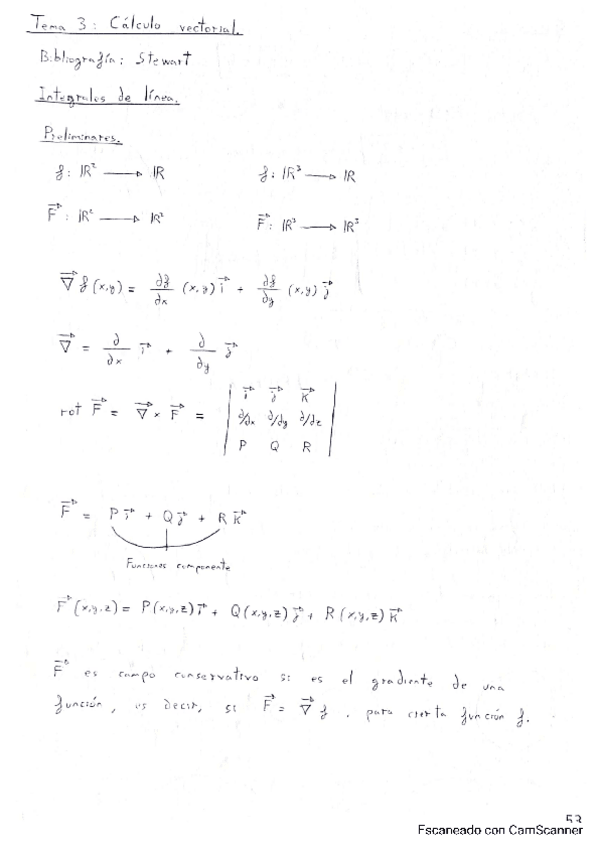 Tema 3: Cálculo vectorial.
Bibliografía: Stewart
Integrales de línea.
Preliminares.
f: ℝ² → ℝ f: ℝ³ → ℝ
F⃗: ℝ² → ℝ² F⃗: ℝ³ → ℝ³
∇⃗ f(x,y) = ∂f/∂x (x,y) i⃗ + ∂f/∂y (x,y) j⃗
∇⃗ = ∂/∂x i⃗ + ∂/∂y j⃗
rot F⃗ = ∇⃗ × F⃗ = | i⃗ j⃗ k⃗ |
| ∂/∂x ∂/∂y ∂/∂z |
| P Q R |
F⃗ = P i⃗ + Q j⃗ + R k⃗
Funciones componente
F⃗(x,y,z) = P(x,y,z) i⃗ + Q(x,y,z) j⃗ + R(x,y,z) k⃗
F⃗ es campo conservativo si es el gradiente de una
función, es decir, si F⃗ = ∇⃗ f, para cierta función f.
53
Escaneado con CamScanner